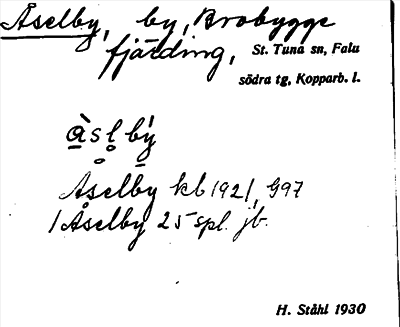 Åselby, by, Brobygge
fjärding, St. Tuna sn, Falu
södra tg, Kopparb. l.
Åselby kb 1921, 997
1 Åselby 25 spl. jb.
H. Ståhl 1930